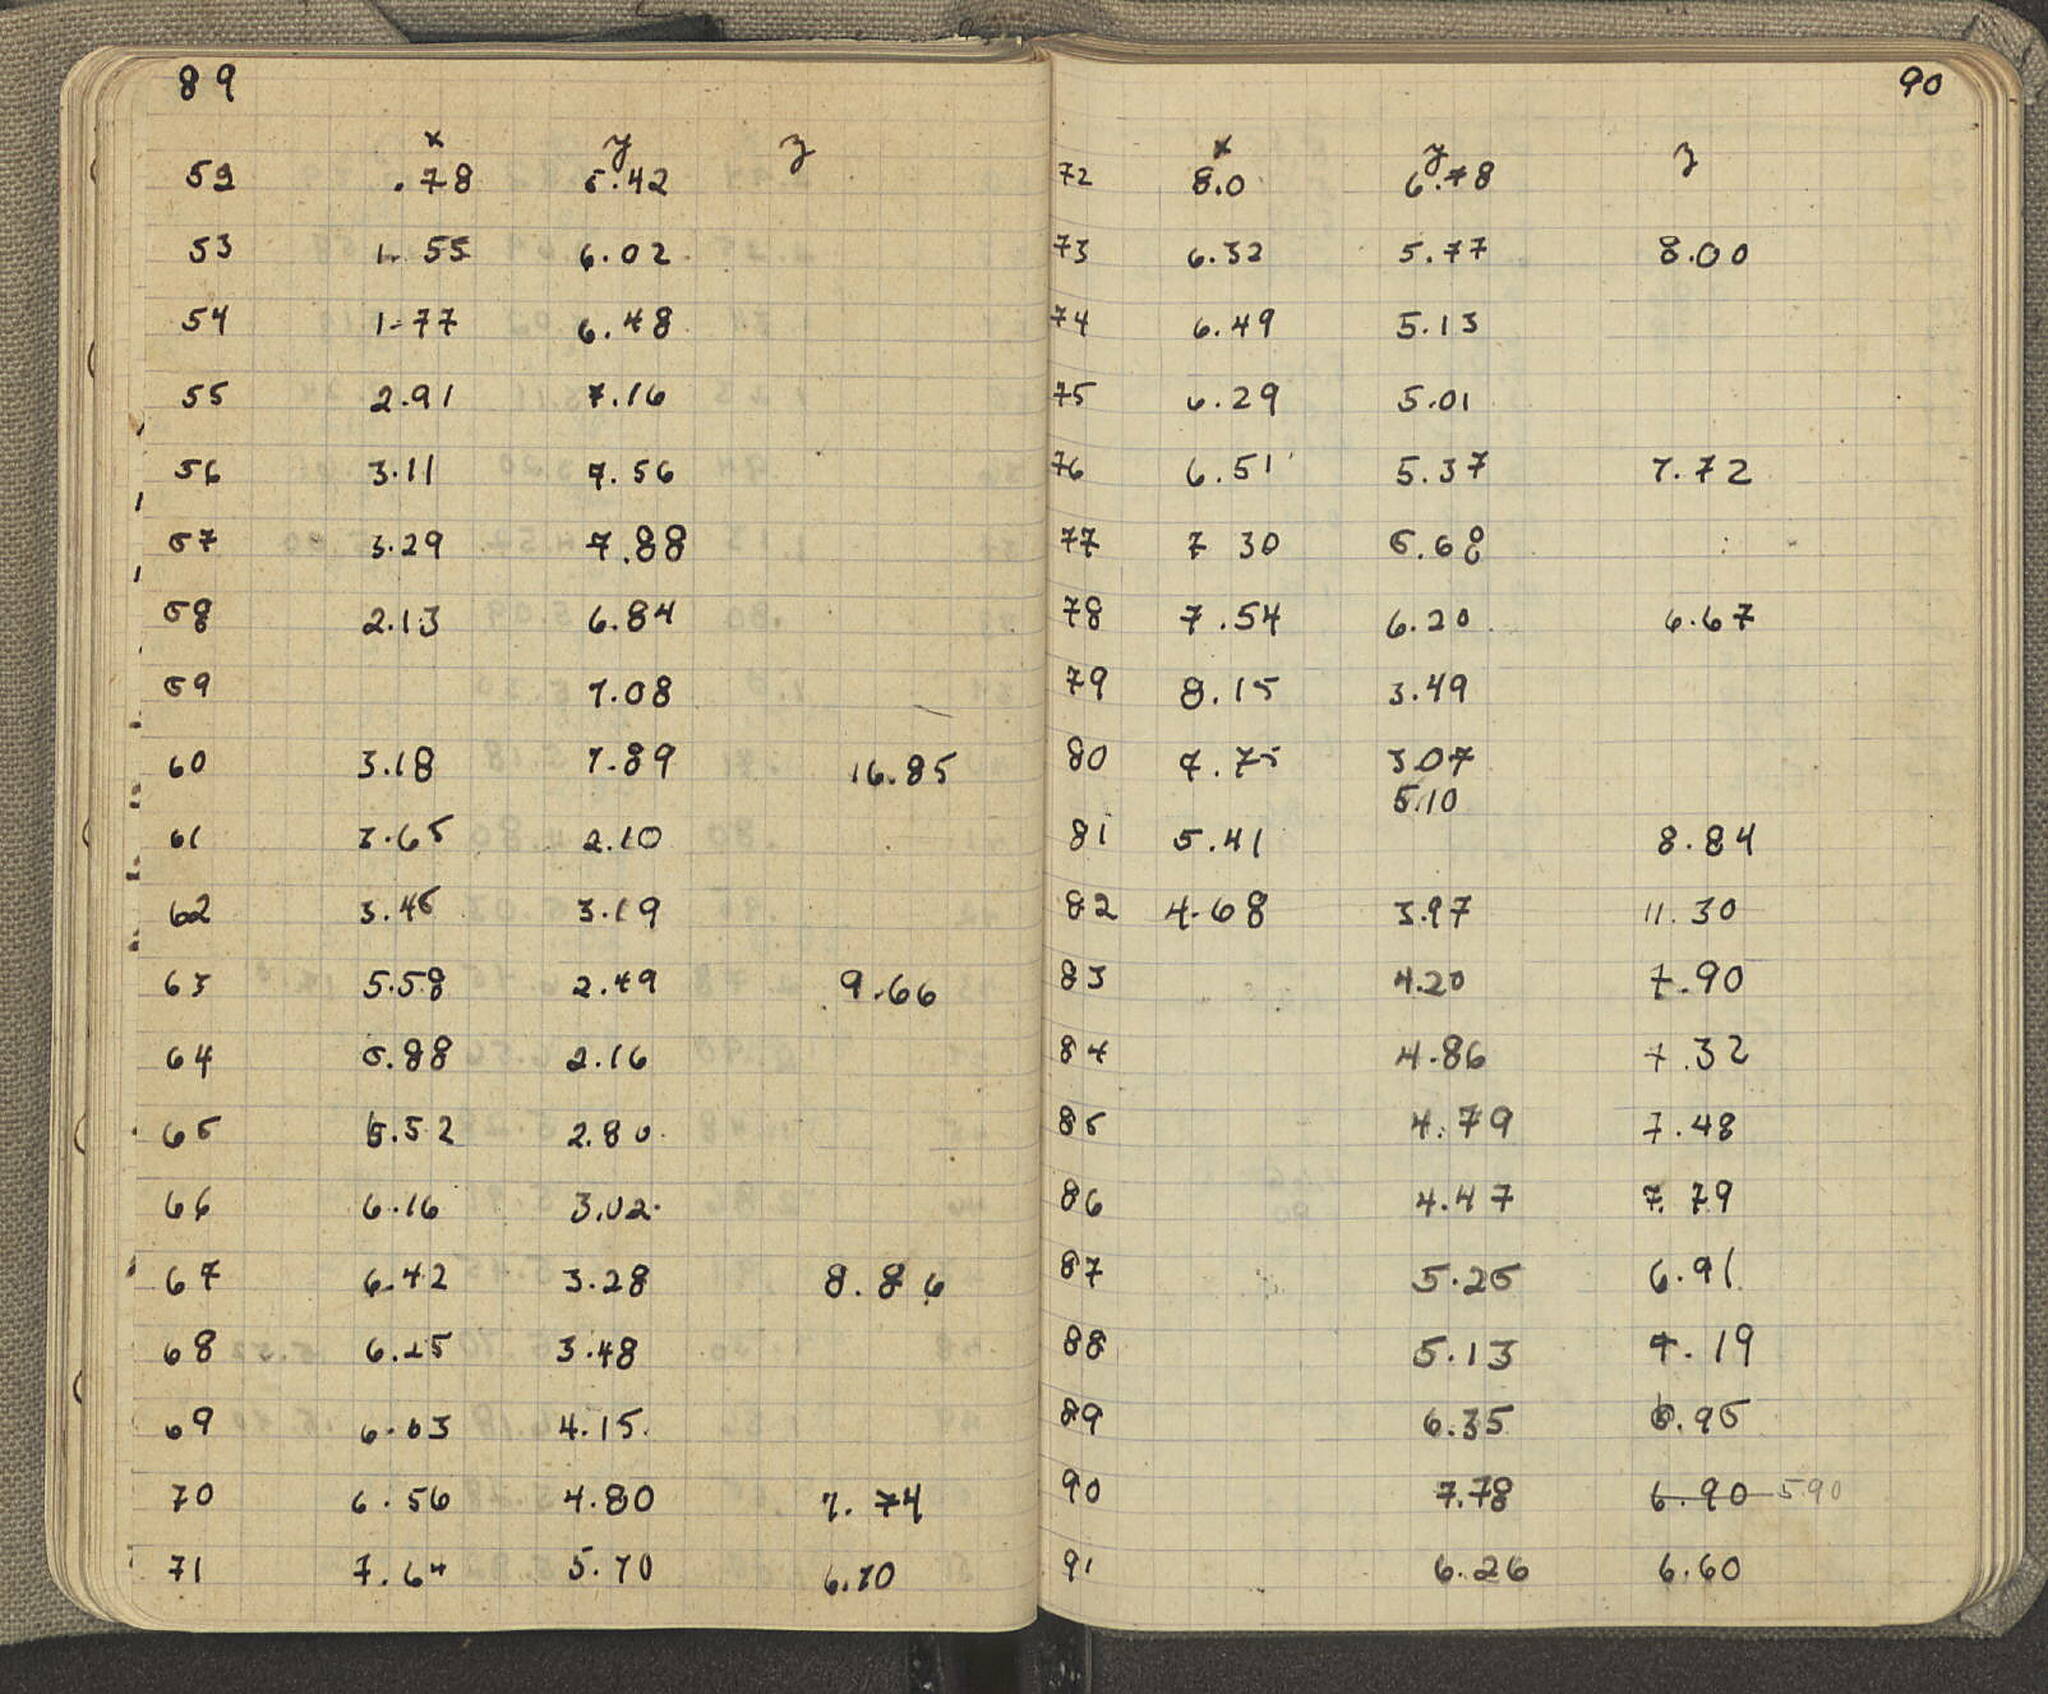 89
x y z
52 .78 5.42
53 1.55 6.02
54 1.77 6.48
55 2.91 7.16
56 3.11 7.56
57 3.29 7.88
58 2.13 6.84
59 7.08
60 3.18 7.89 16.85
61 3.65 2.10
62 3.45 3.19
63 5.58 2.49 9.66
64 5.88 2.16
65 5.52 2.80
66 6.16 3.02
67 6.42 3.28 8.86
68 6.25 3.48
69 6.03 4.15
70 6.56 4.80 7.74
71 7.64 5.70 6.70
90
x y z
72 8.0 6.78
73 6.32 5.77 8.00
74 6.49 5.13
75 6.29 5.01
76 6.51 5.37 7.72
77 7 30 5.68
78 7.54 6.20 6.67
79 8.15 3.49
80 7.75 3.07
5.10
81 5.41 8.84
82 4.68 3.97 11.30
83 4.20 7.90
84 4.86 7.32
85 4.79 7.48
86 4.47 7.79
87 5.25 6.91
88 5.13 7.19
89 6.35 6.95
90 7.78 6.90 5.90
91 6.26 6.60